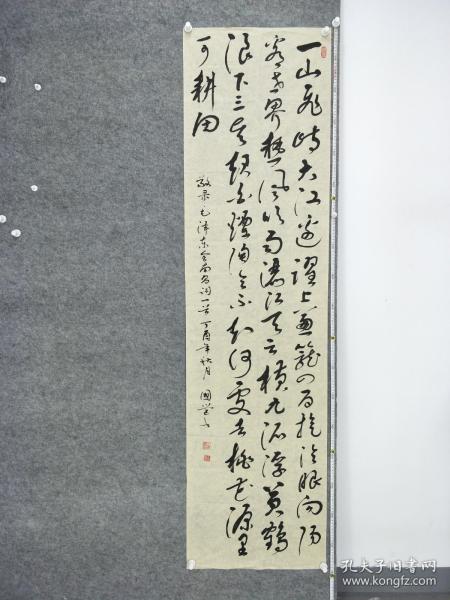 一山飛峙大江边躍上葱蘢四百旋冷眼向阳
看世界熱風吹雨灑江天云橫九派浮黃鶴
浪下三吴起白煙陶令不知何處去桃花源里
可耕田
敬录毛泽东 词一首 丁酉年秋月 國
孔夫子旧书网
www.kongfz.com